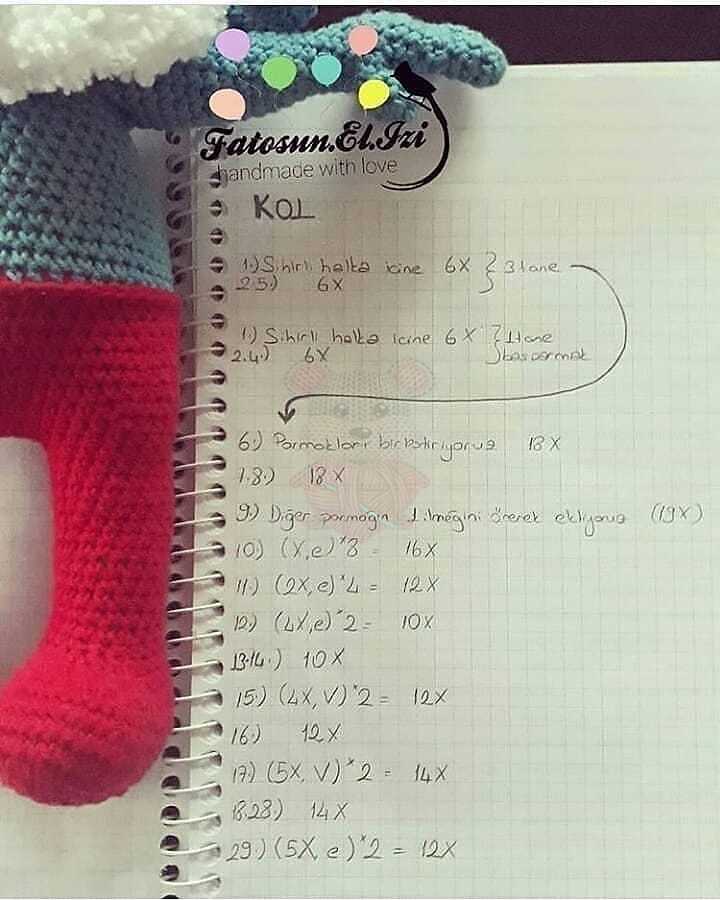 Fatosun.El.Izi
handmade with love
KOL
1.) Sihirli halka icine 6X } 3 tane
2.5.) 6X
1.) Sihirli halka icine 6X } 1 tane
2.4.) 6X başparmak
6.) Parmakları birleştiriyoruz 18X
7.8.) 18X
9.) Diğer parmağın 1. ilmeğini örerek ekliyoruz (19X)
10.) (X,e)*3 = 16X
11.) (2X,e)*4 = 12X
12.) (4X,e)*2 = 10X
13.14.) 10X
15.) (4X,V)*2 = 12X
16.) 12X
17.) (5X,V)*2 = 14X
18.28.) 14X
29.) (5X,e)*2 = 12X